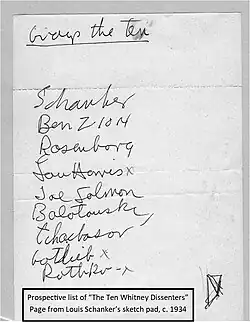 Group the Ten
Schanker
Ben Zion
Rosenborg
Lou Harris x
Joe Solmon
Bolotouski,
Tchacbasov
Gotlieb x
Rothko - x
Prospective list of "The Ten Whitney Dissenters"
Page from Louis Schanker's sketch pad, c. 1934